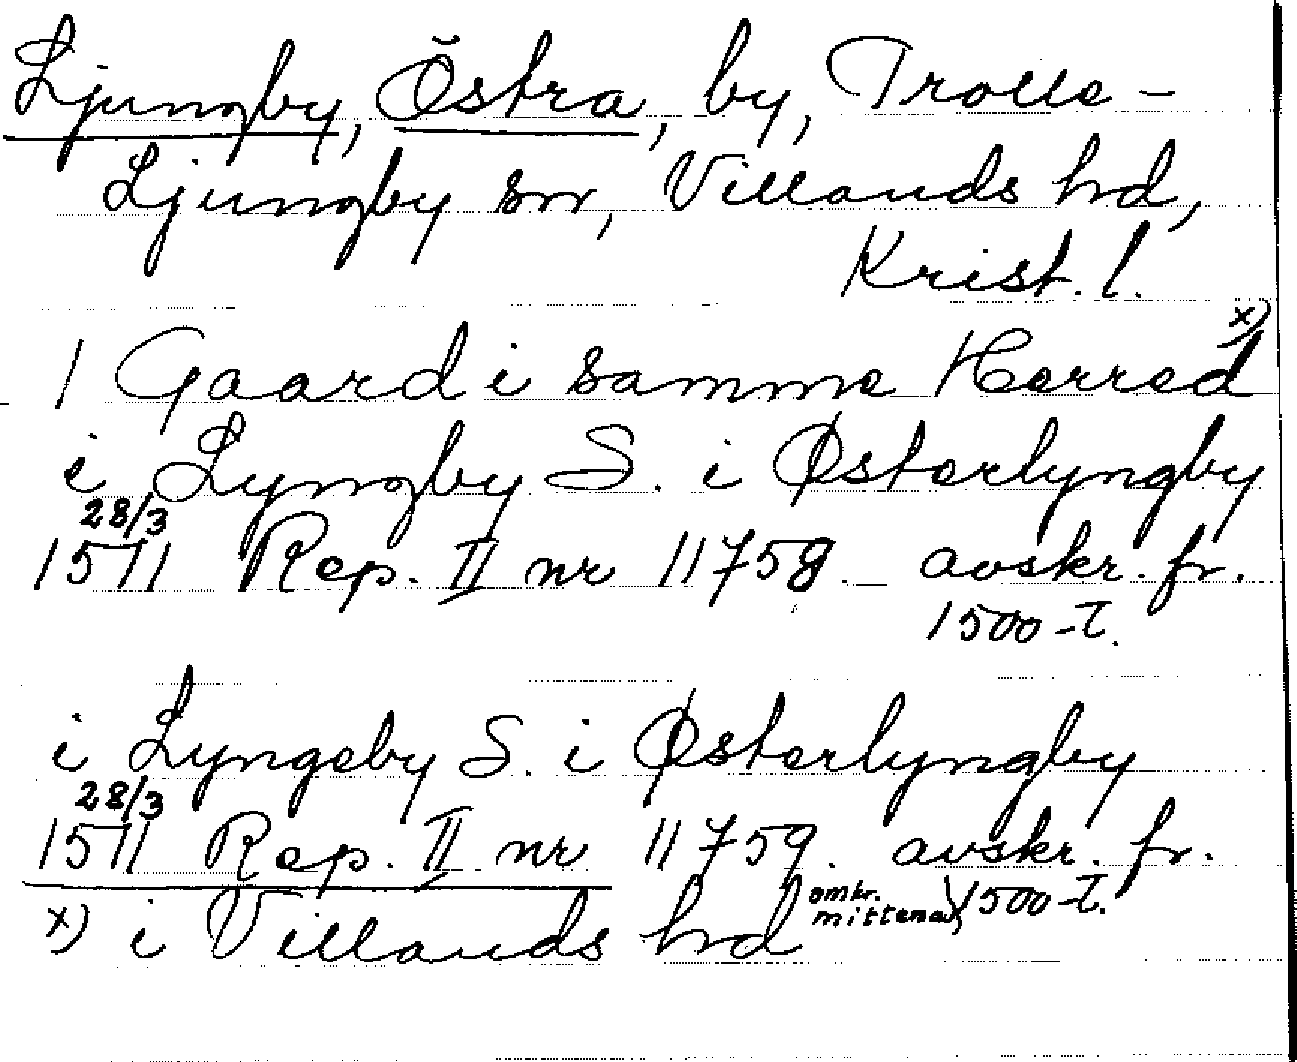 Ljungby, Östra, by, Trolle-
Ljungby sn, Villands hd,
Krist. l.
1 Gaard i samme Herred x)
i Lyngby S. i Østerlyngby
28/3
1511 Rep. II nr 11758. avskr. fr.
1500-t.
i Lyngeby S. i Østerlyngby
28/3
1511 Rep. II nr 11759. avskr. fr.
omkr. mitten av 1500-t.
x) i Villands hd